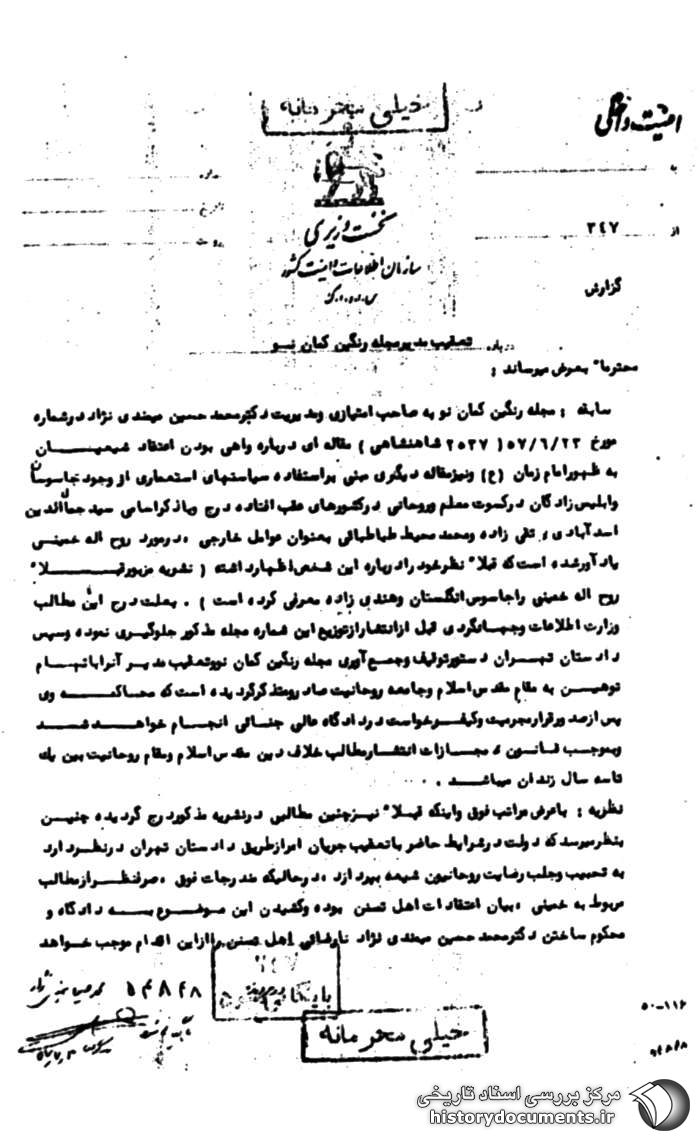 خیلی محرمانه
امنیت داخلی
به
از ۳٤۷
شماره
تاریخ
پیوست
نخست وزیری
سازمان اطلاعات و امنیت کشور
س.ا.و.ا.ک
گزارش
درباره تعقیب مدیرمجله رنگین کمان نو
محترما" بعرض میرساند :
سابقه : مجله رنگین کمان نو به صاحب امتیازی ومدیریت دکترمحمد حسین میمندی نژاد درشماره
مورخ ۵۷/٦/۲۳ ( ۲۵۳۷ شاهنشاهی ) مقاله ای درباره واهی بودن اعتقاد شیعیـــان
به ظهورامام زمان (ع) ونیزمقاله دیگری مبنی براستفاده سیاستهای استعماری از وجود جاسوسان
وابلیس زادگان درکسوت معلم وروحانی درکشورهای عقب افتاده درج وباذکراسامی سید جمال الدین
اسدآبادی، تقی زاده ومحمد محیط طباطبائی بعنوان عوامل خارجی ، درمورد روح اله خمینی
یادآورشده است که قبلا" نظرخود رادرباره این شخص اظهارداشته ( نشریه مزبورقبـــلا"
روح اله خمینی راجاسوس انگلستان وهندی زاده معرفی کرده است ) . بعلت درج این مطالب
وزارت اطلاعات وجهانگردی قبل ازانتشارازتوزیع این شماره مجله مذکور جلوگیری نموده وسپس
دادستان تهـران دستورتوقیف وجمع آوری مجله رنگین کمان نووتعقیب مدیـر آنراباتهـام
توهیـن به مقام مقدس اسلام وجامعه روحانیت صادرومتذکرگردیده است که محاکمـه وی
پس ازصدورقرارمجرمیت وکیفرخواست دردادگاه عالی جنائی انجـام خواهـد شـد
وبموجب قانـون ، مجـازات انتشارمطالب خلاف دین مقدس اسلام ومقام روحانیت بین یک
تاسه سال زندان میباشـد .
نظریه : باعرض مراتب فوق واینکه قبـلا" نیـزچنین مطالبی درنشریه مذکوردرج گردیده چنیـن
بنظرمیرسدکه دولت درشرایط حاضر باتعقیب جریان امرازطریق دادستان تهران درنظـردارد
به تحبیب وجلب رضایت روحانیون شیعه بپردازد ، درحالیکه مندرجات فوق ، صرفنظـرازمطالب
مربوط به خمینی ، بیان اعتقادات اهل تسنن بوده وکشیدن این موضـوع بـه دادگاه و
محکوم ساختن دکترمحمد حسین میمندی نژاد نارضائی اهل تسنن راازاین اقدام موجب خواهد
بایگانی
۵۴۸۴۸
خیلی محرمانه
۵۰-۱۱۶
مرکز بررسی اسناد تاریخی
historydocuments.ir